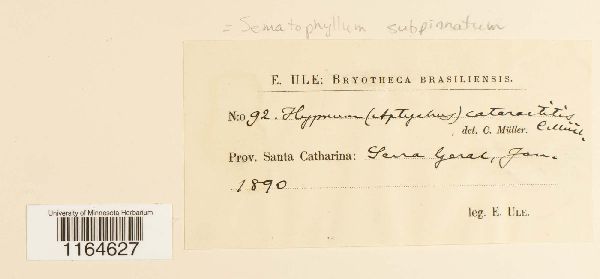 = Sematophyllum subpinnatum
E. ULE: BRYOTHECA BRASILIENSIS.
N:o 92. Hypnum (Aptychus) cataractitis
C. Müll.
det. C. Müller.
Prov. Santa Catharina: Serra Geral, Jan.
1890
leg. E. ULE.
University of Minnesota Herbarium
1164627